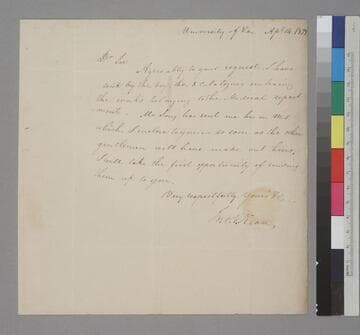 University of Va. Apl. 14. 18
Dr Sir
Agreeably to your request I have
sent by the bearer the 2 Catalogues embracing
the works belonging to the Medical depart
ments. Mr Long has sent me his in MS
which I enclose to you so soon as the other
gentlemen will have made out theirs
I will take the first opportunity of sending
them up to you.
Very respectfully yours &c